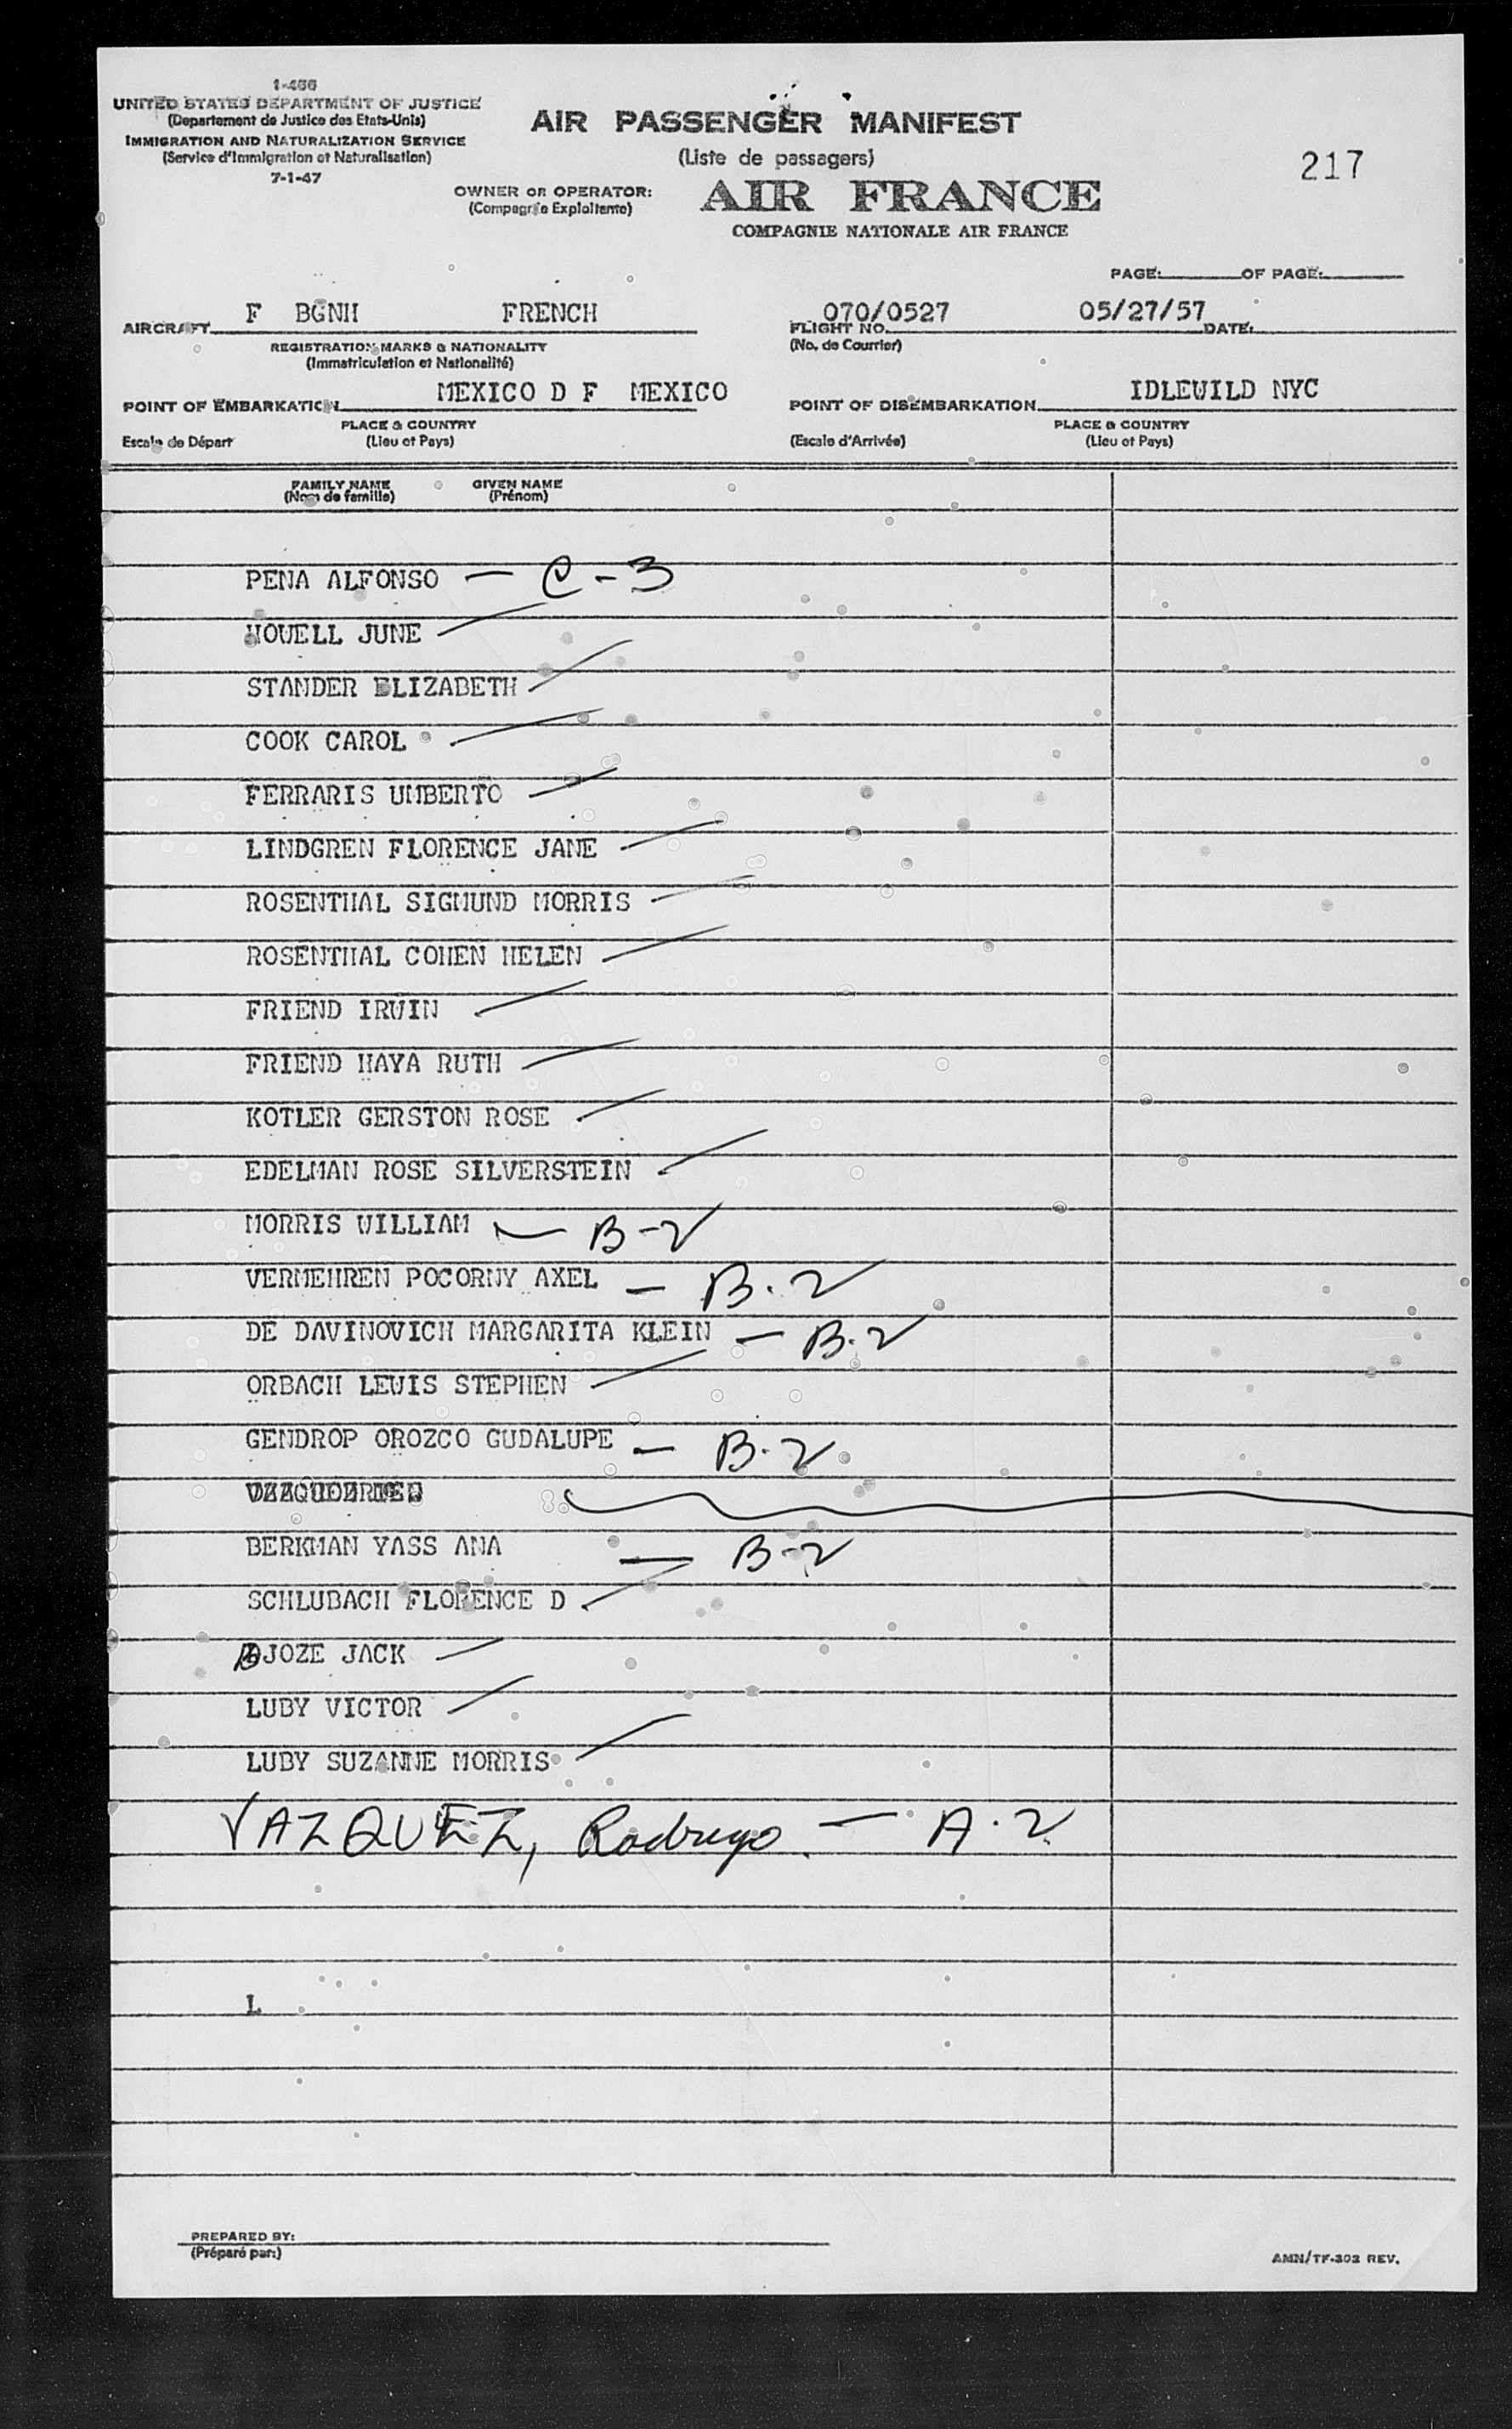 I-466
UNITED STATES DEPARTMENT OF JUSTICE
(Departement de Justice des Etats-Unis)
IMMIGRATION AND NATURALIZATION SERVICE
(Service d'Immigration et Naturalisation)
7-1-47
AIR PASSENGER MANIFEST
(Liste de passagers)
217
OWNER OR OPERATOR:
(Compagnie Exploitante)
AIR FRANCE
COMPAGNIE NATIONALE AIR FRANCE
PAGE: OF PAGE:
AIRCRAFT F BGNH FRENCH
REGISTRATION MARKS & NATIONALITY
(Immatriculation et Nationalité)
FLIGHT NO. 070/0527 05/27/57 DATE:
(No. de Courrier)
POINT OF EMBARKATION MEXICO D F MEXICO
PLACE & COUNTRY
Escale de Départ (Lieu et Pays)
POINT OF DISEMBARKATION IDLEWILD NYC
PLACE & COUNTRY
(Escale d'Arrivée) (Lieu et Pays)
FAMILY NAME GIVEN NAME
(Nom de famille) (Prénom)
PENA ALFONSO — C-3
JUNE
STANDER ELIZABETH
COOK CAROL
FERRARIS UMBERTO
LINDGREN FLORENCE JANE
ROSENTHAL SIGMUND MORRIS
ROSENTHAL COHEN HELEN
FRIEND IRWIN
FRIEND HAYA RUTH
KOTLER GERSTON ROSE
EDELMAN ROSE SILVERSTEIN
MORRIS WILLIAM — B-2
VERMEHREN POCORNY AXEL — B.2
DE DAVINOVICH MARGARITA KLEIN — B.2
ORBACH LEWIS STEPHEN
GENDROP OROZCO GUDALUPE — B.2
BERKMAN YASS ANA — B-2
SCHLUBACH FLORENCE D
BJOZE JACK
LUBY VICTOR
LUBY SUZANNE MORRIS
VAZQUEZ, Rodrigo — A.2
L
PREPARED BY:
(Préparé par:)
AMN/TF-302 REV.